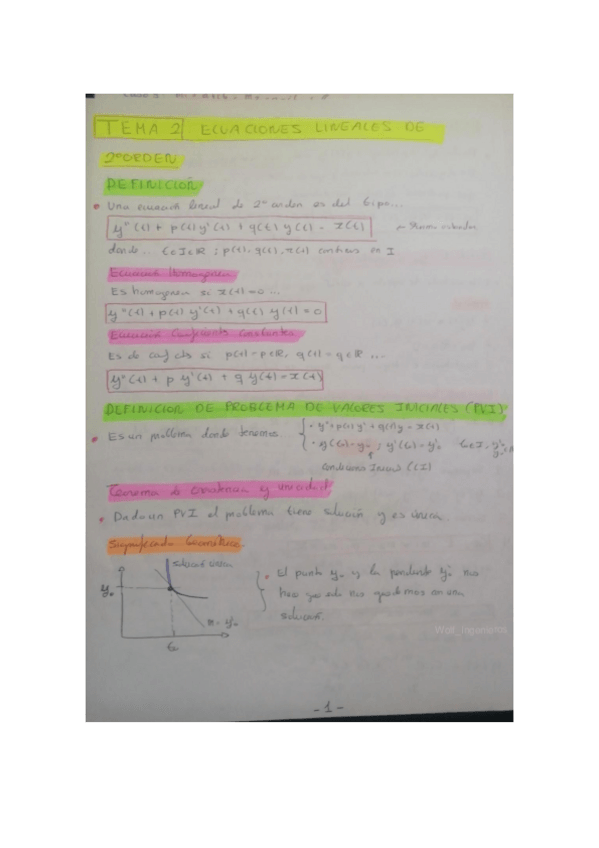 TEMA 2 ECUACIONES LINEALES DE
2º ORDEN
DEFINICIÓN
• Una ecuación lineal de 2º orden es del tipo...
y''(t) + p(t) y'(t) + q(t) y(t) = r(t)
donde... t∈I⊂ℝ ; p(t), q(t), r(t) continuas en I
Ecuación Homogénea
Es homogénea si r(t)=0 ...
y''(t) + p(t) y'(t) + q(t) y(t) = 0
Ecuación Coeficientes Constantes
Es de coef cts si p(t)=p∈ℝ, q(t)=q∈ℝ ...
y''(t) + p y'(t) + q y(t) = r(t)
DEFINICION DE PROBLEMA DE VALORES INICIALES (PVI)
• Es un problema donde tenemos
• y''+p(t) y' + q(t)y = r(t)
• y(t₀)=y₀ ; y'(t₀)=y'₀ t₀∈I,
Condiciones Iniciales (CI)
Teorema de existencia y unicidad
• Dado un PVI el problema tiene solución y es única
Significado Geométrico
solución única
y₀
m = y'₀
t₀
• El punto y₀ y la pendiente y'₀ nos
hace que solo nos quedemos con una
solución.
Wolf_Ingenieros
- 1 -